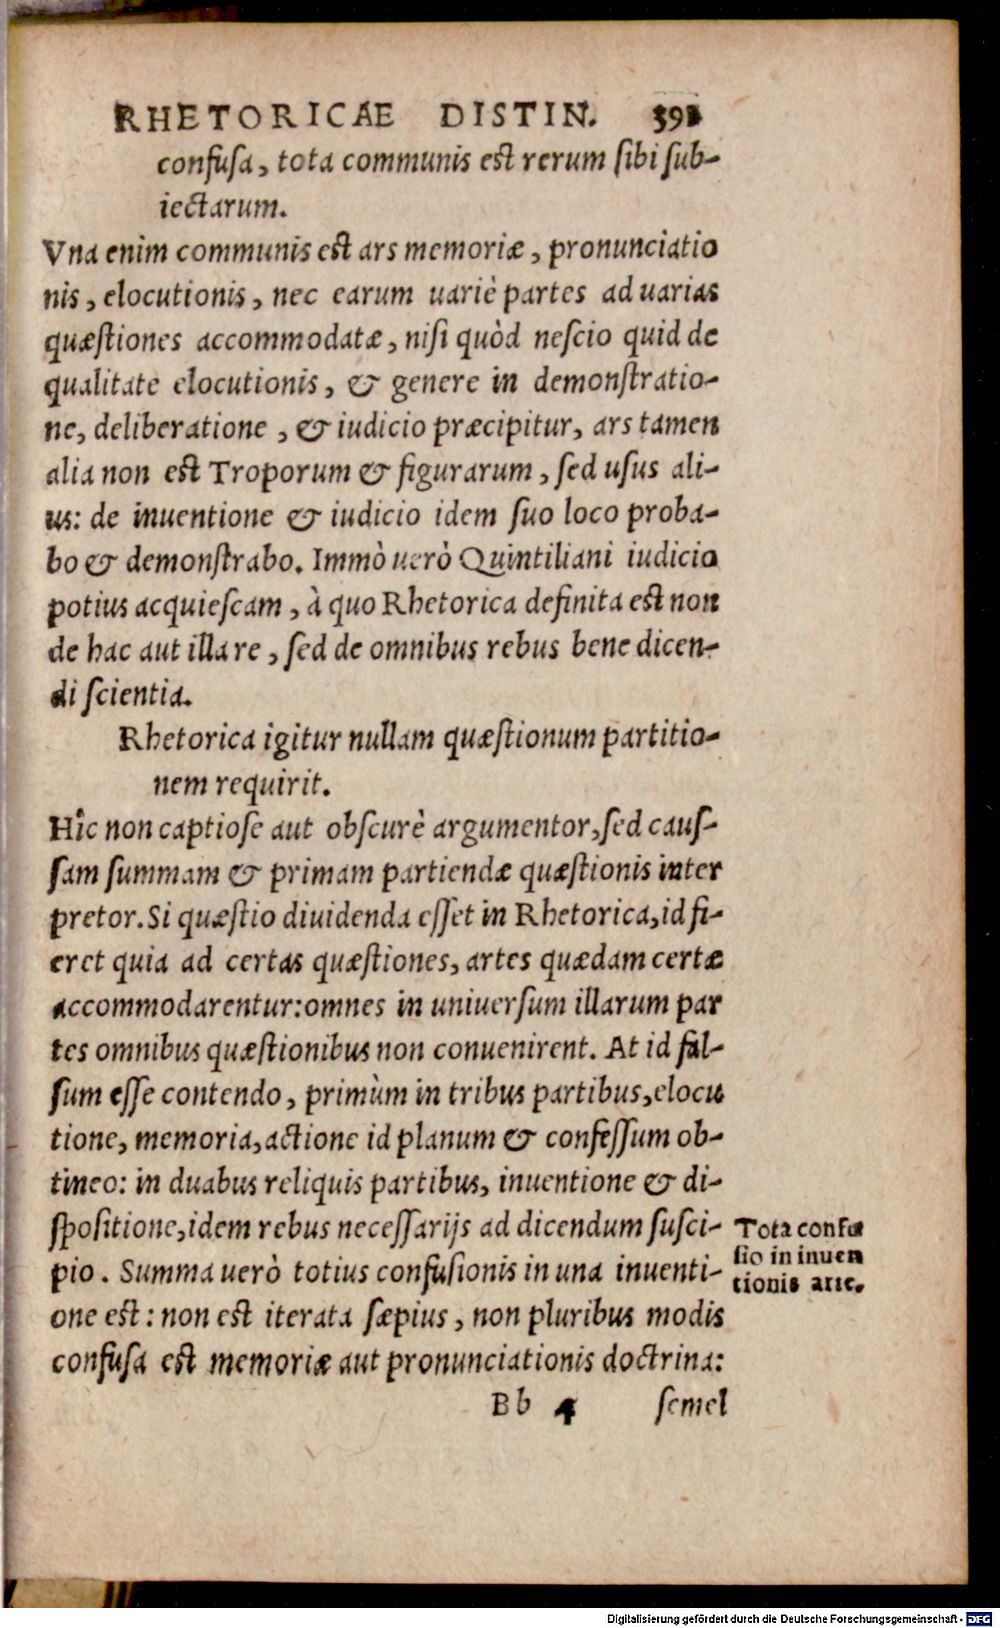 RHETORICAE DISTIN. 391
confusa, tota communis est rerum sibi sub-
iectarum.
Vna enim communis est ars memoriæ, pronunciatio
nis, elocutionis, nec earum uariè partes ad uarias
quæstiones accommodatæ, nisi quòd nescio quid de
qualitate elocutionis, & genere in demonstratio-
ne, deliberatione, & iudicio præcipitur, ars tamen
alia non est Troporum & figurarum, sed usus ali-
us: de inuentione & iudicio idem suo loco proba-
bo & demonstrabo. Immò uerò Quintiliani iudicio
potius acquiescam, à quo Rhetorica definita est non
de hac aut illa re, sed de omnibus rebus bene dicen-
di scientia.
Rhetorica igitur nullam quæstionum partitio-
nem requirit.
Hîc non captiose aut obscurè argumentor, sed caus-
sam summam & primam partiendæ quæstionis inter
pretor. Si quæstio diuidenda esset in Rhetorica, id fi-
eret quia ad certas quæstiones, artes quædam certæ
accommodarentur: omnes in uniuersum illarum par
tes omnibus quæstionibus non conuenirent. At id fal-
sum esse contendo, primùm in tribus partibus, elocu
tione, memoria, actione id planum & confessum ob-
tineo: in duabus reliquis partibus, inuentione & di-
spositione, idem rebus necessarijs ad dicendum susci-
pio. Summa uerò totius confusionis in una inuenti-
one est: non est iterata sæpius, non pluribus modis
confusa est memoriæ aut pronunciationis doctrina:
Tota confu
sio in inuen
tionis arte.
Bb 4 semel
Digitalisierung gefördert durch die Deutsche Forschungsgemeinschaft - DFG